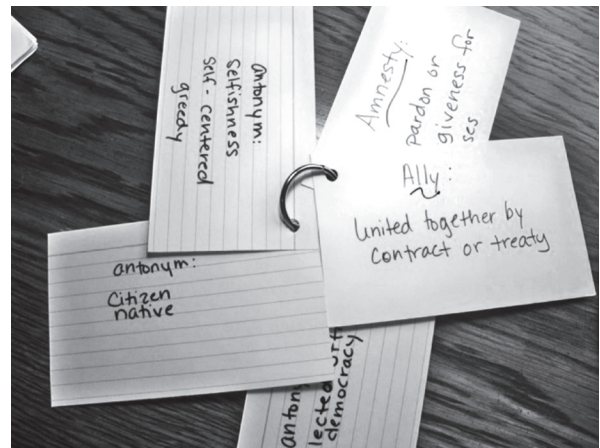 antonym:
Selfishness
self-centered
greedy
Amnesty:
pardon or
giveness for
ses
Ally:
United together by
contract or treaty
antonym:
Citizen
native
anton
lected
democracy